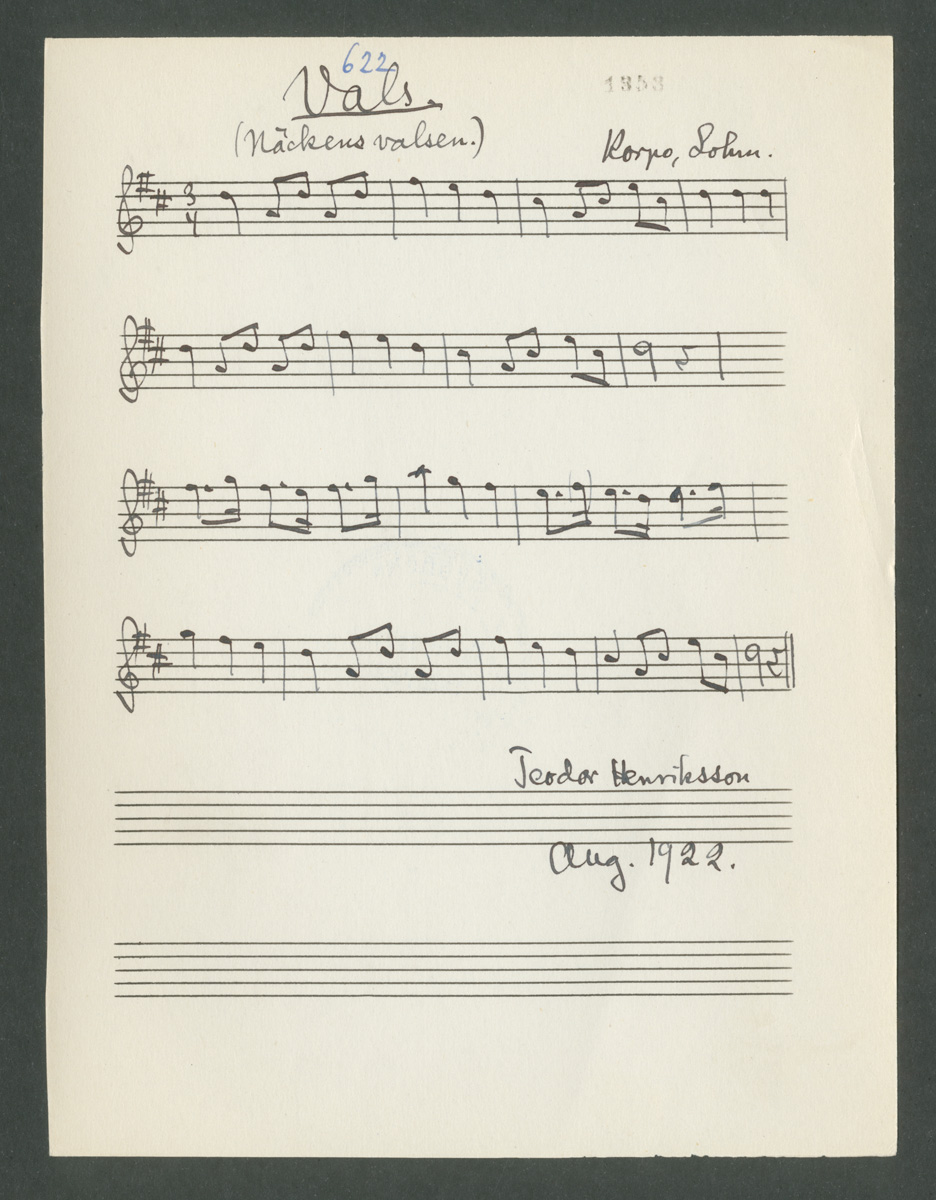 622
1353
Vals.
(Näckens valsen.)
Korpo, Lohm.
3
4
Teodor Henriksson
Aug. 1922.